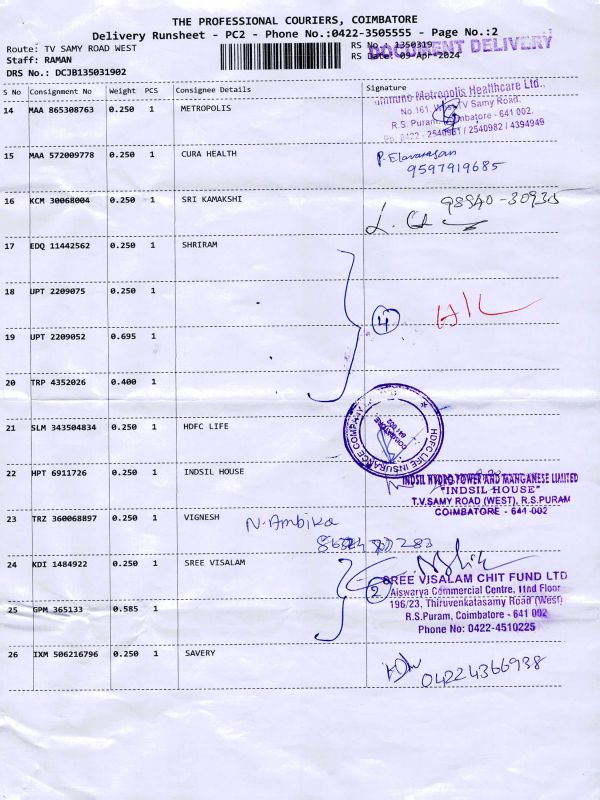 THE PROFESSIONAL COURIERS, COIMBATORE
Delivery Runsheet - PC2 - Phone No.:0422-3505555 - Page No.:2
Route: TV SAMY ROAD WEST
RS No. 1350319
DOCUMENT DELIVERY
Staff: RAMAN
RS Date: 09-Apr-2024
DRS No.: DCJB135031902
S No Consignment No Weight PCS Consignee Details Signature
14 MAA 865308763 0.250 1 METROPOLIS
Metropolis Healthcare Ltd.,
No.161, West TV Samy Road,
R.S. Puram, Coimbatore - 641 002.
Ph. 0422 - 2540981 / 2540982 / 4394949
15 MAA 572009778 0.250 1 CURA HEALTH
P. Elavarasan
9597919685
16 KCM 30068004 0.250 1 SRI KAMAKSHI
98940-30935
17 EDQ 11442562 0.250 1 SHRIRAM
18 UPT 2209075 0.250 1
4
19 UPT 2209052 0.695 1
20 TRP 4352026 0.400 1
21 SLM 343504834 0.250 1 HDFC LIFE
HDFC LIFE INSURANCE COMPANY
COIMBATORE
641 002
22 HPT 6911726 0.250 1 INDSIL HOUSE
INDSIL HYDRO POWER AND MANGANESE LIMITED
"INDSIL HOUSE"
T.V.SAMY ROAD (WEST), R.S.PURAM
COIMBATORE - 641 002
23 TRZ 360068897 0.250 1 VIGNESH
N. Ambika
24 KDI 1484922 0.250 1 SREE VISALAM
2
SREE VISALAM CHIT FUND LTD
Aiswarya Commercial Centre, IInd Floor
196/23, Thiruvenkatasamy Road (West)
R.S.Puram, Coimbatore - 641 002
Phone No: 0422-4510225
25 GPM 365133 0.585 1
26 IXM 506216796 0.250 1 SAVERY
04224366938